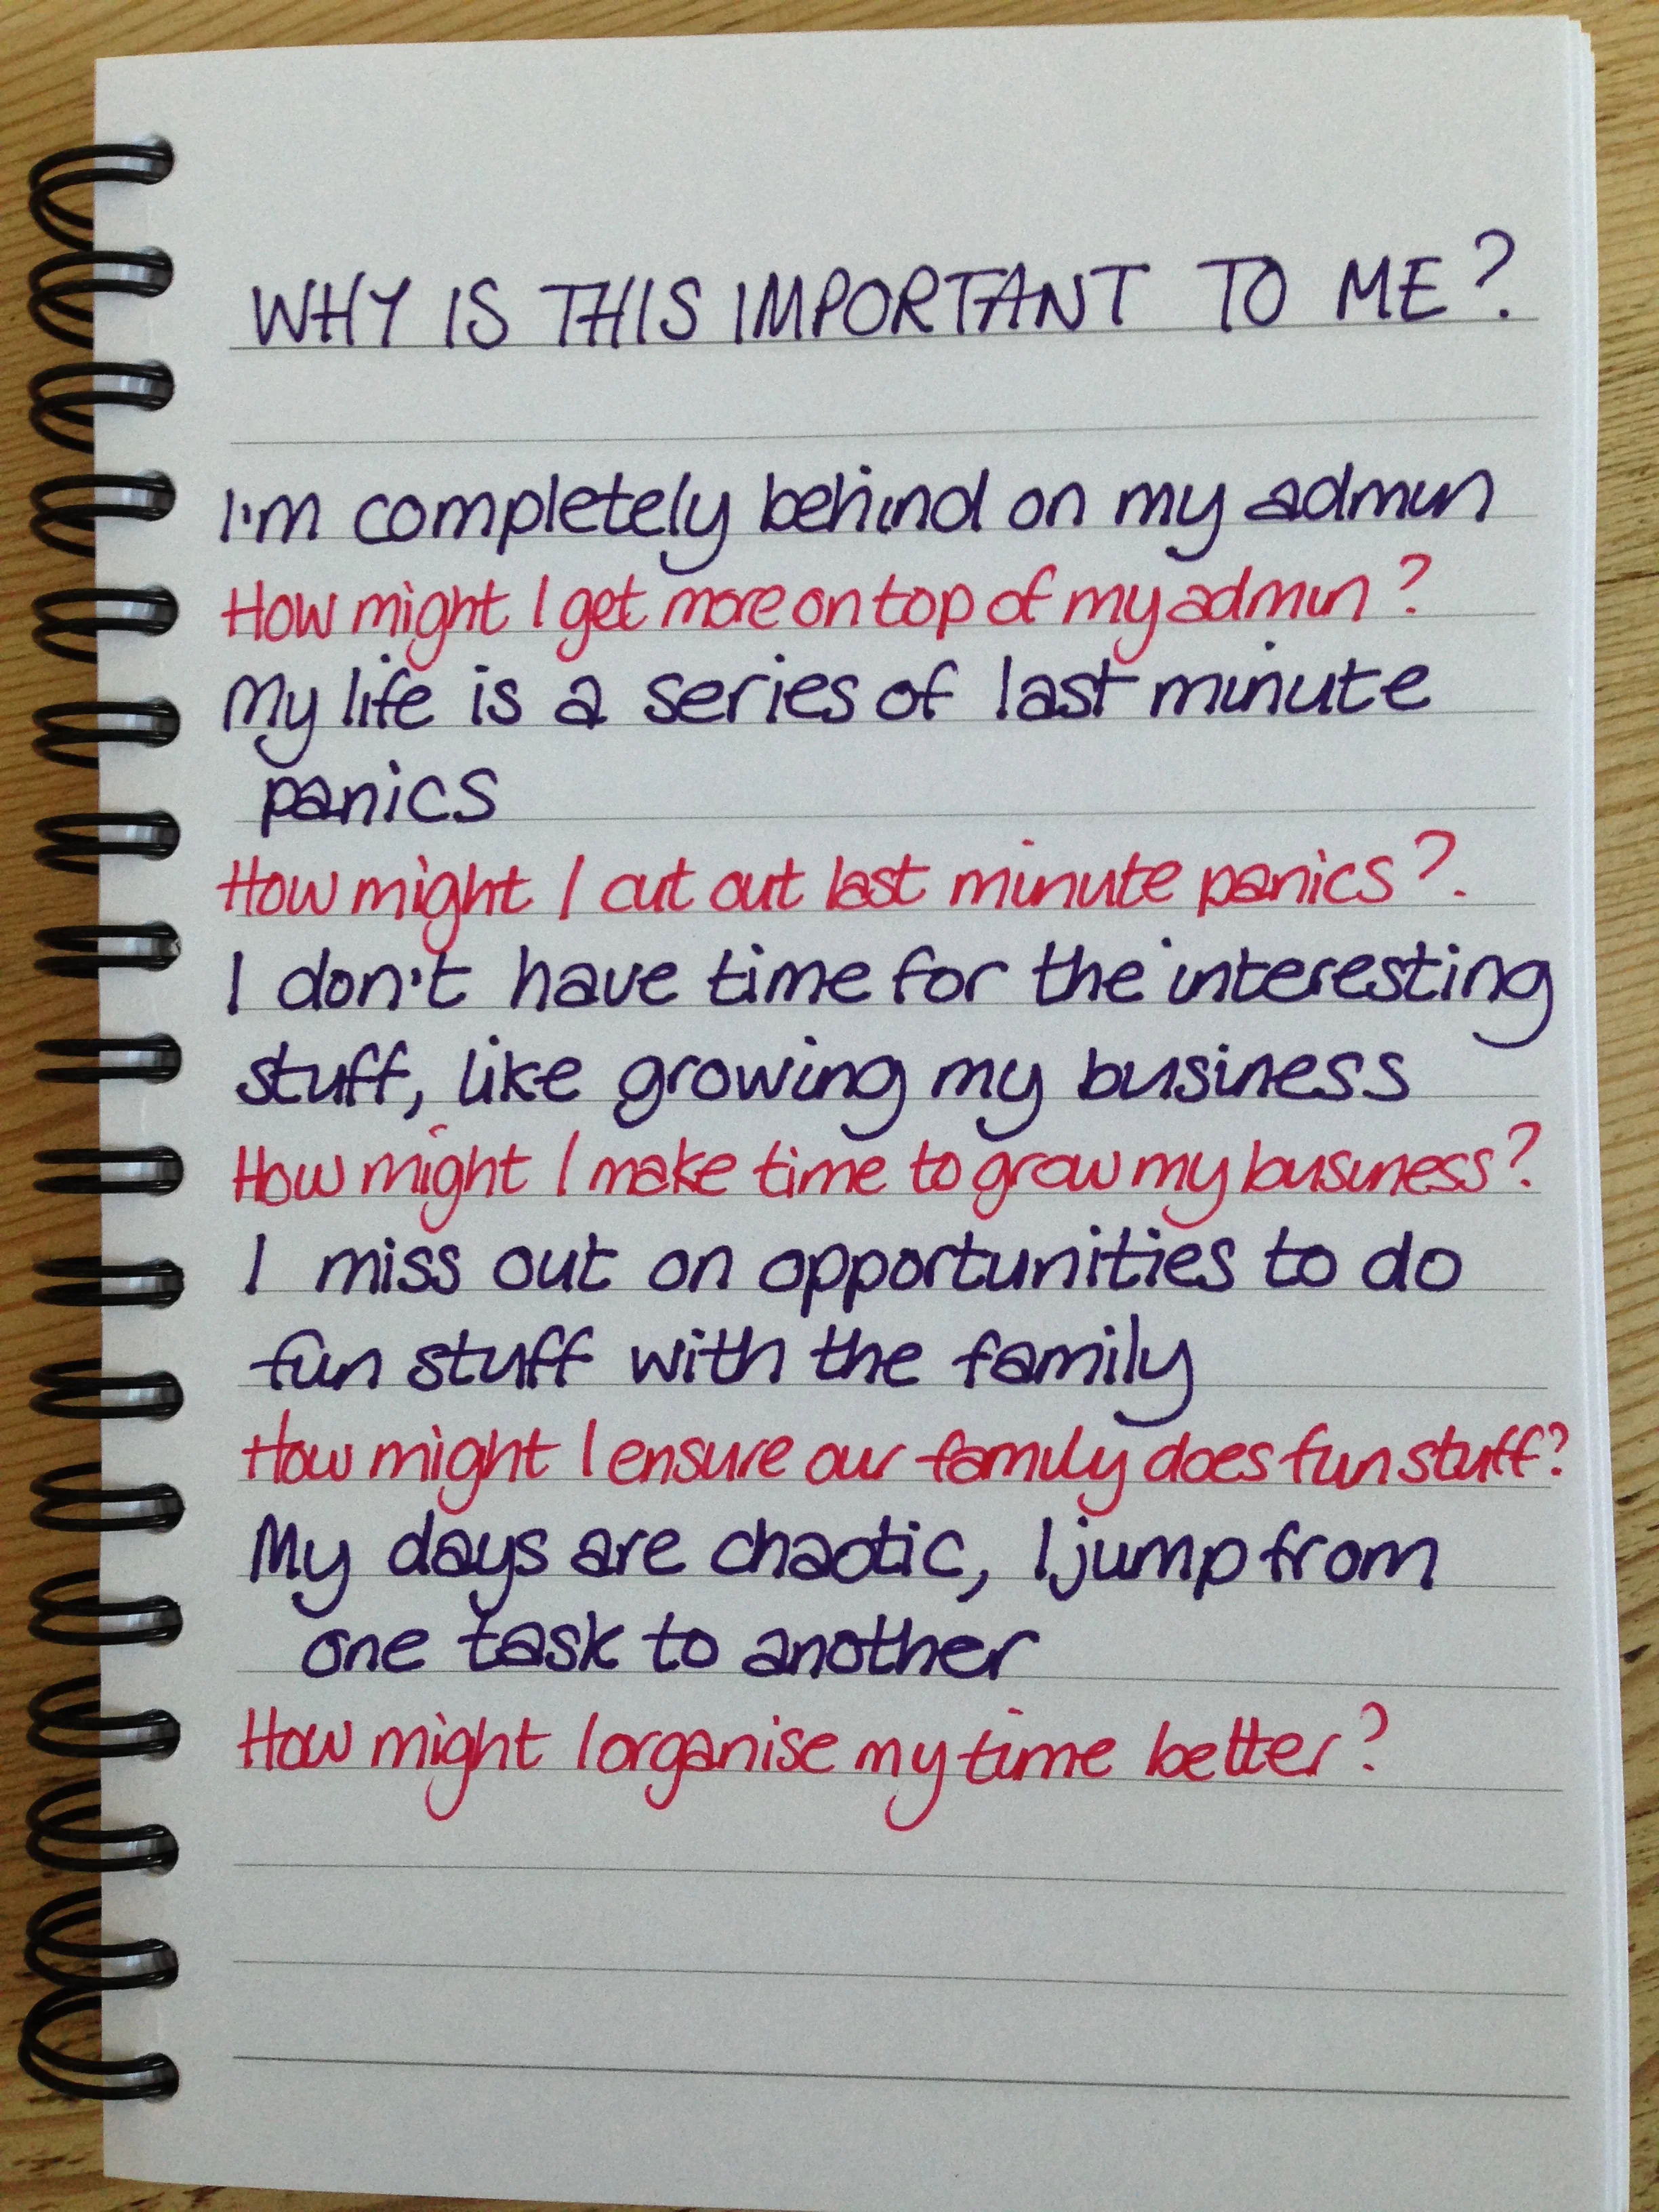 WHY IS THIS IMPORTANT TO ME?
I'm completely behind on my admin
How might I get more on top of my admin?
My life is a series of last minute
panics
How might I cut out last minute panics?.
I don't have time for the interesting
stuff, like growing my business
How might I make time to grow my business?
I miss out on opportunities to do
fun stuff with the family
How might I ensure our family does fun stuff?
My days are chaotic, I jump from
one task to another
How might I organise my time better?